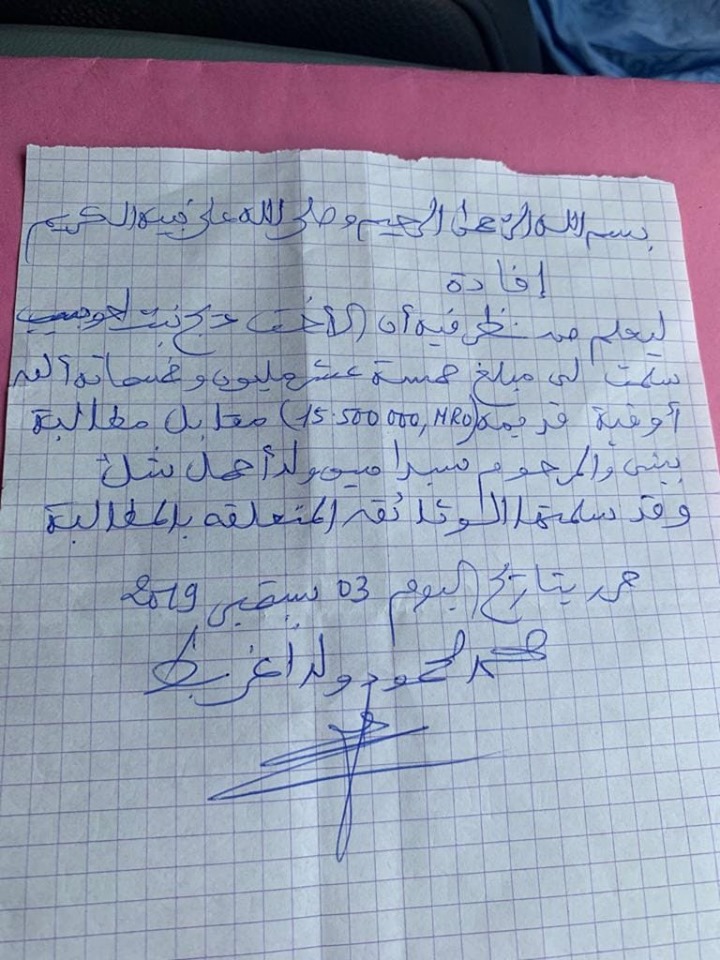 بسم الله الرحمن الرحيم وصلى الله على نبيه الكريم
إفادة
ليعلم من نظر فيه أن الأخت دج بنت
سلمت لى مبلغ خمسة عشر مليون وخمسمائة ألف
أوقية قديمة (15.500 000, MRO) مقابل مطالبة
بينى والمرحوم سيد امين ولد أحمد شل
وقد سلمتها الوثائق المتعلقة بالمطالبة
حرر بتاريخ اليوم 03 سبتمبر 2019
محمد محمود ولد